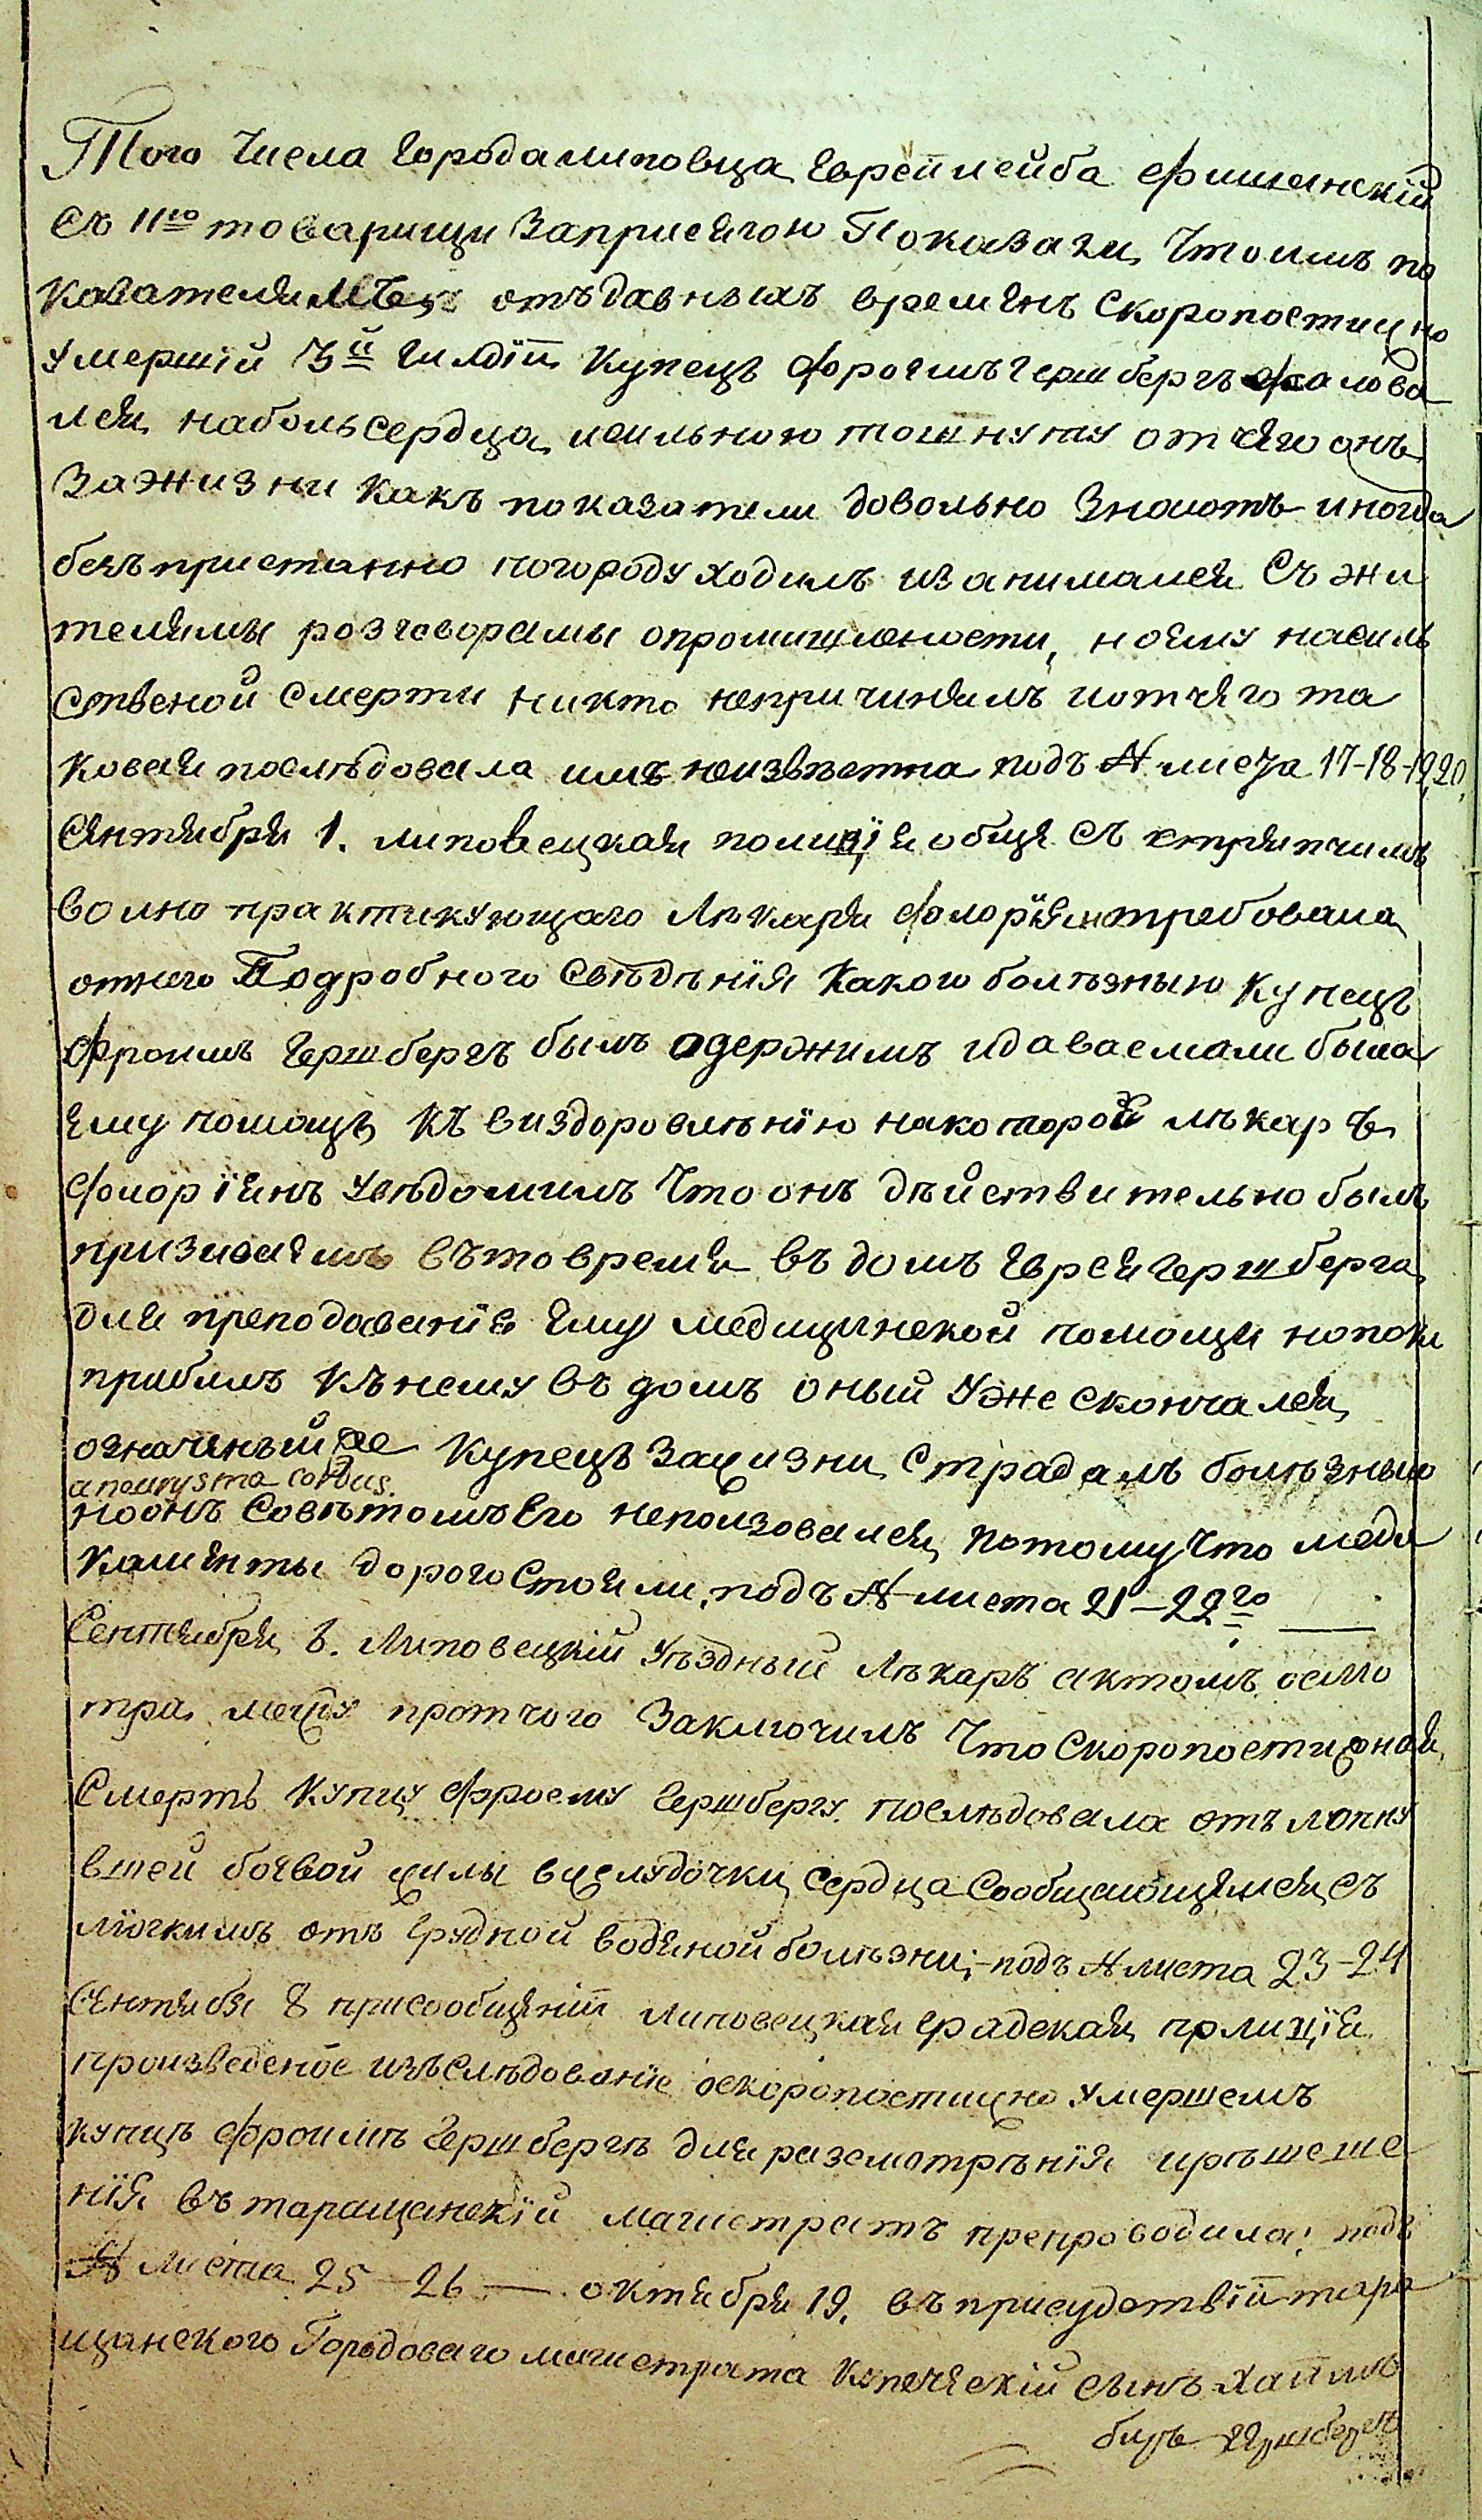 Того числа города липовца Еврей лейба Фишанскій
съ 11ю товарищи Заприсягою Показали, что имъ по
казателямъ отъ давныхъ времянъ скоропостижно
умершій 3й гилдіи купецъ Фроимъ Гершбергъ жалова
лся, на боль сердца, и сильною тошнуту от чего онъ
за жизни какъ показатели довольно знаютъ иногда
безъпристанно погороду ходилъ и занимался съ жи
телямы розговорамы опромишлености, но ему насиль
ственой смерти никто непричинялъ и от чего та
ковая последовала имъ неизвѣстна подъ А листа 17-18-19,20,
Сентября 1. липовецкая полиція обще съ стряпчимъ
волно практикующаго Лѣкаря Флоріянъ требовала
отнего Подробного Свѣдѣнія какого болѣзнью купецъ
Фроимъ Гершбергъ былъ одержимъ и даваемали была
ему помощь къ виздоровлѣнію накоторой лѣкаръ
Флоріянъ увѣдомилъ что онъ дѣйствительно былъ
призиваемъ въ то время въ домъ Еврея Гершберга,
для преподаванія ему медицинской помощи но пока
прибилъ къ нему въ домъ оный уже скончался,
означеный же купецъ за жизни страдалъ болѣзнью
aneurysma cordus.
но онъ совѣтомъ Его непользовался, потому что меди
каменты дорого стояли, подъ А листа 21-22го
Сентября 6. Липовецкій уѣздный лѣкаръ актомъ осмо
тра между протчого заключилъ что скоропостижная,
смерть купцу Фроему Гершбергу последовала отъ лопну
вшей боевой жилы в желудочки, сердца сообщающимся, съ
люгкимъ отъ грудной водяной болѣзни; подъ А листа 23-24
Сентября 8 присообщеніи липовецкая градская, полиція
произведеное изъслѣдованіе оскоропостижно умершемъ
купцѣ Фроимѣ Гершбергѣ для разсмотрѣнія и рѣшеше
нія въ таращанскій магистратъ препроводила; подъ
А листа 25-26 — октября 19. въ присудствіи тара
щанского Городоваго магистрата купеческій сынъ Хаимъ
биръ Гершбергъ